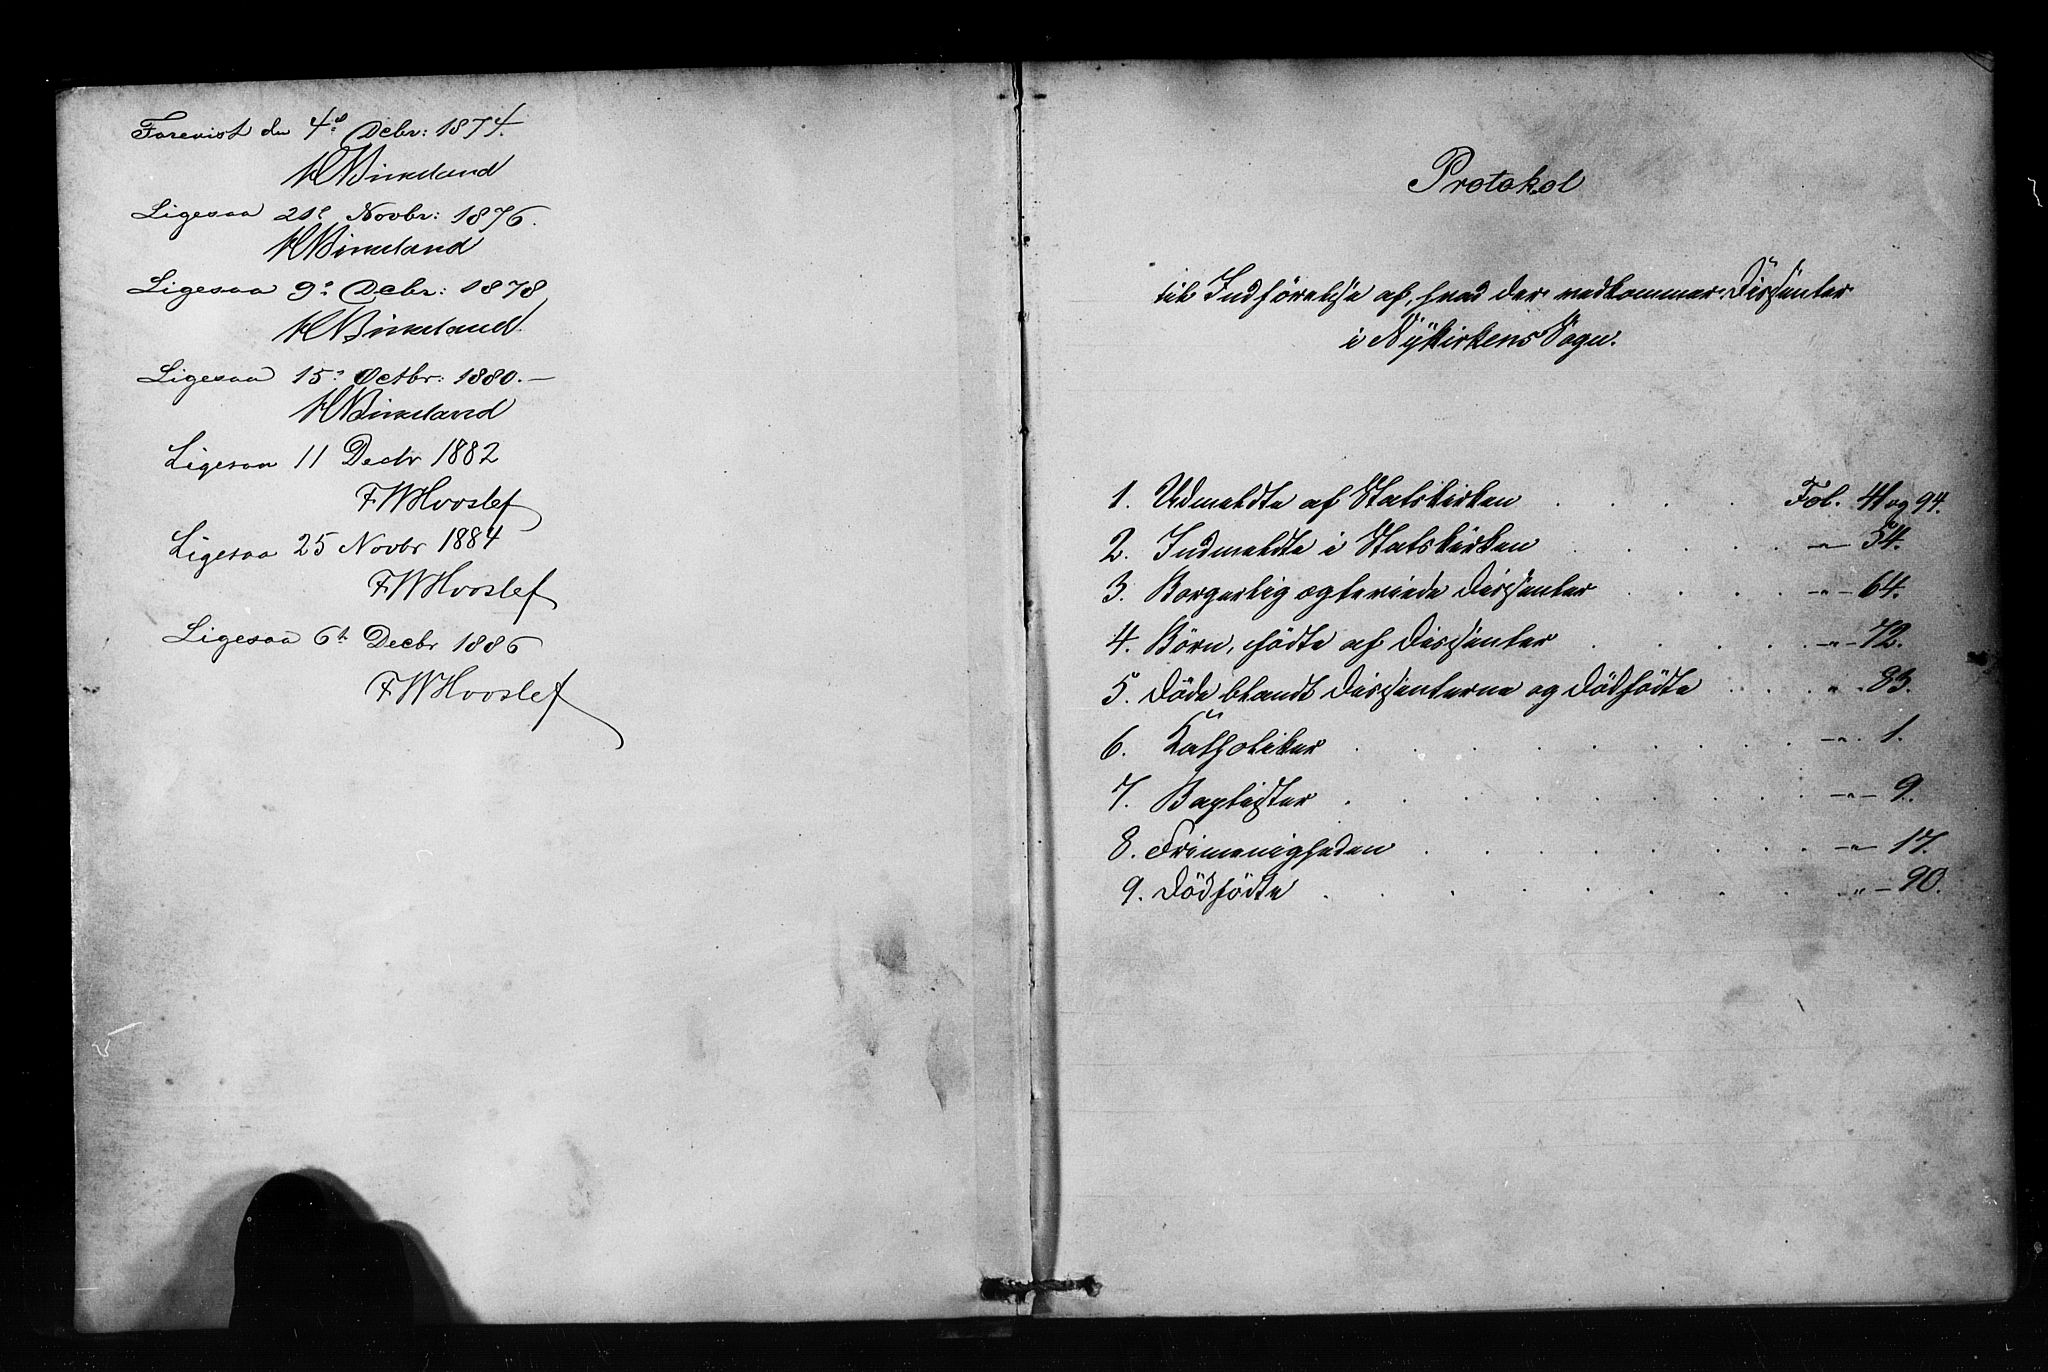 Forevist den 4de Decbr: 1874.
HBirkeland
Ligesaa 21de Novbr: 1876.
HBirkeland
Ligesaa 9de Decbr: 1878
HBirkeland
Ligesaa 15de Octbr: 1880. —
HBirkeland
Ligesaa 11 Decbr 1882
FWHvoslef
Ligesaa 25 Novbr 1884
FWHvoslef
Ligesaa 6te Decbr 1886
FWHvoslef
Protokol
til Indförelse af, hvad der vedkommer Dissenter
i Nykirkens Sogn.
1. Udmeldte af Statskirken . . . . Fol. 41 og 94.
2. Indmeldte i Statskirken . . . . —"— 54.
3. Borgerlig ægteviede Dissenter . . . . —"— 64.
4. Börn, födte af Dissenter . . . . —"— 72.
5. Döde blandt Dissenterne og Dödfödte . . . . " . 83.
6. Katholiker . . . . . . . . —". 1.
7. Baptister . . . . . . . . . —"— 9.
8. Frimenigheden . . . . . . . —"— 17.
9. Dödfödte . . . . . . . . . "— 90.